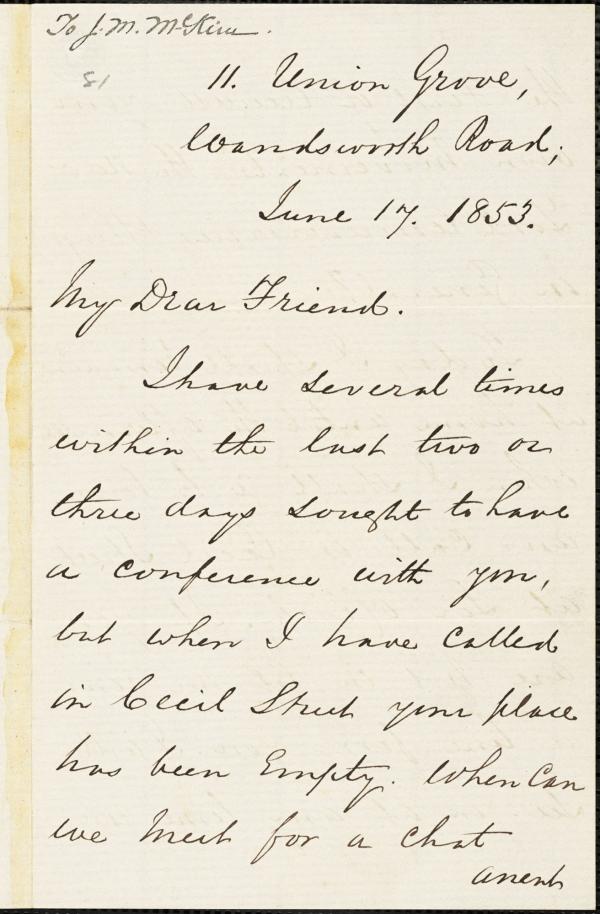 To J. M. McKim.
81
11. Union Grove,
Wandsworth Road;
June 17. 1853.
My Dear Friend.
I have several times
within the last two or
three days sought to have
a conference with you,
but when I have called
in Cecil Street your place
has been Empty. When Can
we Meet for a chat
anent